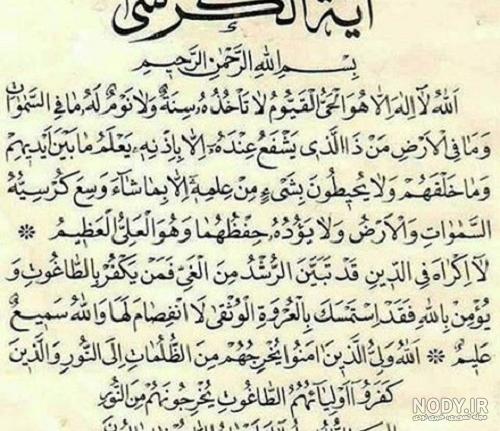 آية الكرسى
بِسْمِ اللهِ الرَّحْمٰنِ الرَّحيمِ
اَللهُ لَآ اِلٰهَ اِلَّا هُوَ الْحَىُّ الْقَيُّومُ لَا تَأْخُذُهُ سِنَةٌ وَلَا نَوْمٌ لَهُ مَا فِى السَّمٰوَاتِ
وَمَا فِى الْاَرْضِ مَنْ ذَا الَّذى يَشْفَعُ عِنْدَهُ اِلَّا بِاِذْنِهِ يَعْلَمُ مَا بَيْنَ اَيْديهِمْ
وَمَا خَلْفَهُمْ وَلَا يُحيطُونَ بِشَىْءٍ مِنْ عِلْمِهِ اِلَّا بِمَا شَاءَ وَسِعَ كُرْسِيُّهُ
السَّمٰوَاتِ وَالْاَرْضَ وَلَا يَؤُدُهُ حِفْظُهُمَا وَهُوَ الْعَلِىُّ الْعَظيمُ ❊
لَآ اِكْرَاهَ فِى الدّينِ قَدْ تَبَيَّنَ الرُّشْدُ مِنَ الْغَىِّ فَمَنْ يَكْفُرْ بِالطَّاغُوتِ وَ
يُؤْمِنْ بِاللهِ فَقَدِ اسْتَمْسَكَ بِالْعُرْوَةِ الْوُثْقٰى لَا انْفِصَامَ لَهَا وَاللهُ سَميعٌ
عَليمٌ ❊ اَللهُ وَلِىُّ الَّذينَ اٰمَنُوا يُخْرِجُهُمْ مِنَ الظُّلُمَاتِ اِلَى النُّورِ وَالَّذينَ
كَفَرُوا اَوْلِيَائُهُمُ الطَّاغُوتُ يُخْرِجُونَهُمْ مِنَ النُّورِ
NODY.IR